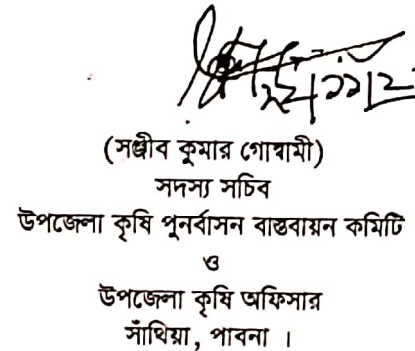 (সঞ্জীব কুমার গোস্বামী)
সদস্য সচিব
উপজেলা কৃষি পুনর্বাসন বাস্তবায়ন কমিটি
ও
উপজেলা কৃষি অফিসার
সাঁথিয়া, পাবনা ।